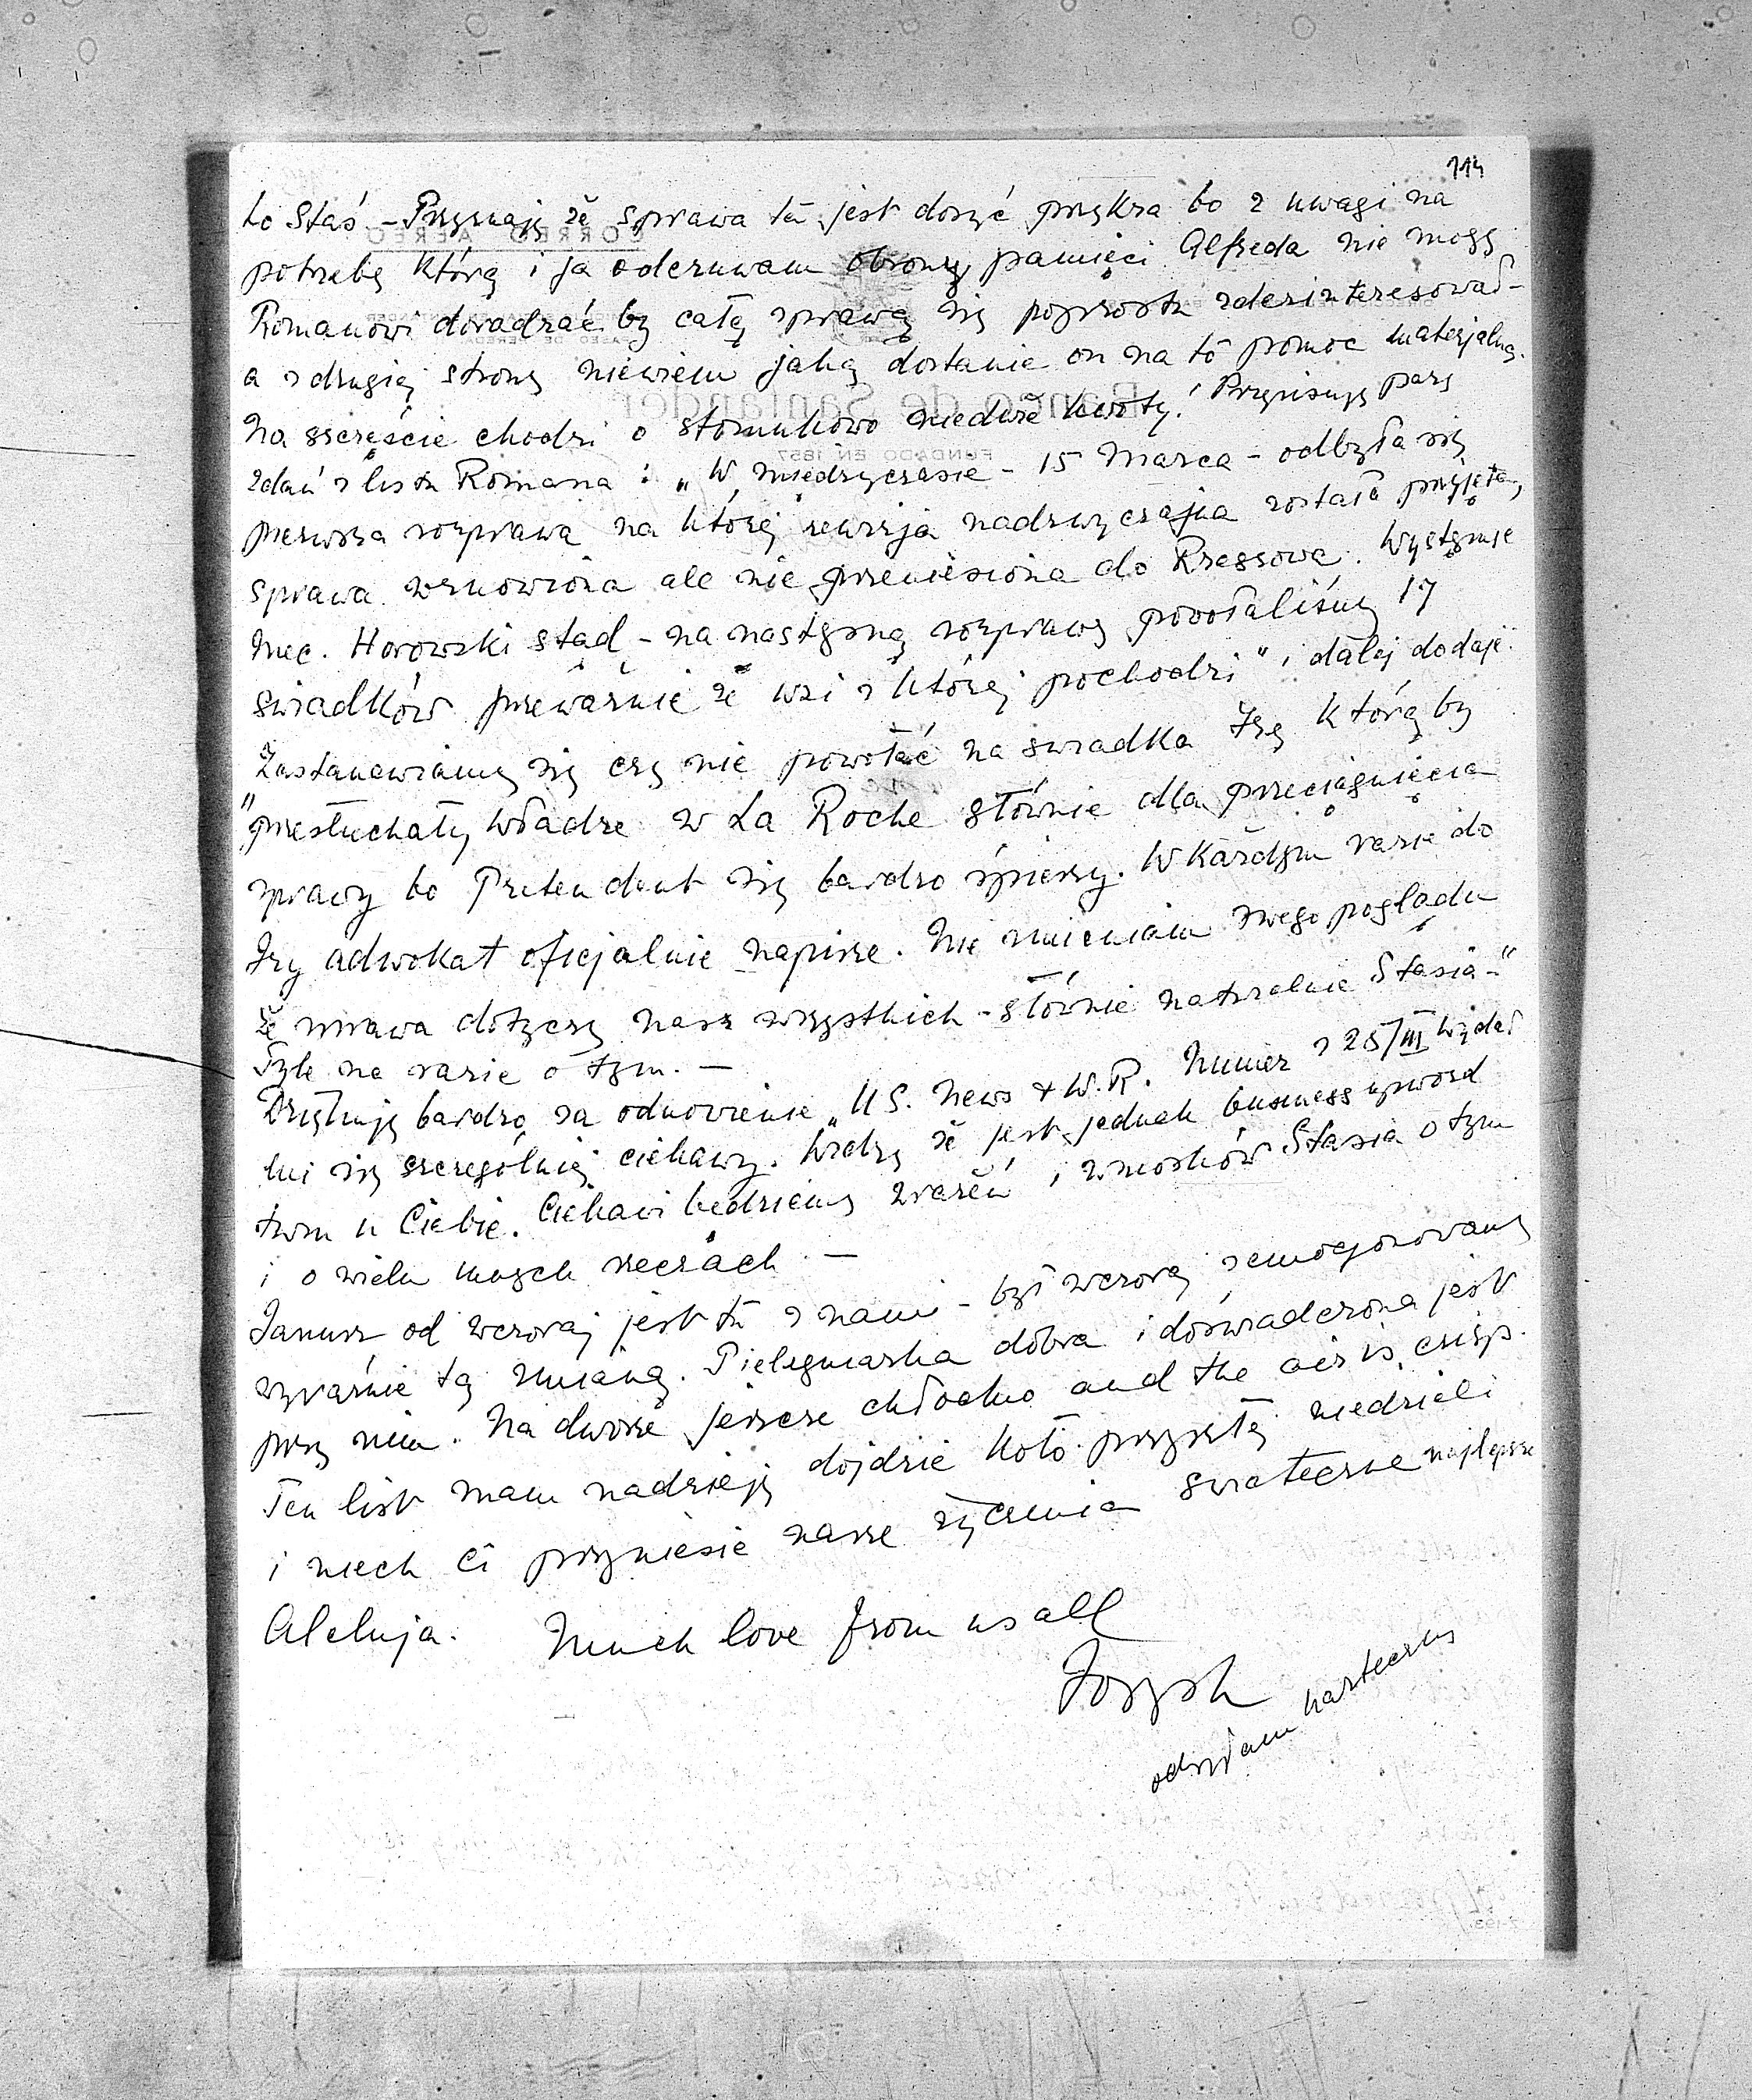 114
to Staś – Przyznaję że sprawa ta jest dosyć przykra bo z uwagi na
potrzebę którą i ja odczuwam obrony pamięci Alfreda nie mogę
Romanowi doradzać by całą sprawą się poprostu zdezinteresował –
a z drugiej strony niewiem jaką dostanie on na to pomoc materjalną.
Na szczęście chodzi o stosunkowo nieduże kwoty! Przepisuję parę
zdań z listu Romana : „W międzyczasie – 15 Marca – odbyła się
pierwsza rozprawa na której rewizja nadzwyczajna została przyjęta,
sprawa wznowiona ale nie przeniesiona do Rzeszowa. Występuje
mec. Horowski stąd – na następną rozprawę powołaliśmy 17
świadków przeważnie ze wsi z której pochodzi" i dalej dodaje:
„Zastanawiamy się czy nie powołać na świadka Izę którą by
przesłuchały władze w La Roche głównie dla przeciągnięcia
sprawy bo Pretendent się bardzo śpieszy. W każdym razie do
Izy adwokat oficjalnie napisze. Nie zmieniam swego poglądu
że sprawa dotyczy nasz wszystkich – głównie naturalnie Stasia –"
Tyle na razie o tym. –
Dziękuję bardzo za odnowienie „U.S. News & W.R. Numer z 25/III wydał
mi się szczególniej ciekawy. Widzę że jest jednak business upward
turn u Ciebie. Ciekawi będziemy wrażeń i wniosków Stasia o tym
i o wielu innych rzeczach. –
Janusz od wczoraj jest tu z nami – był wczoraj zemocjonowany
wyraźnie tą zmianą. Pielęgniarka dobra i doświadczona jest
przy nim. Na dworze jeszcze chłodno and the air is crisp.
Ten list mam nadzieję dojdzie koło przyszłej niedzieli
i niech Ci przyniesie nasze życzenia świąteczne najlepsze
Aleluja. Much love from us all
Józysh
odsyłam karteczkę
CORREO AEREO
Banco de Santander
FUNDADO EN 1857
PASEO DE PEREDA